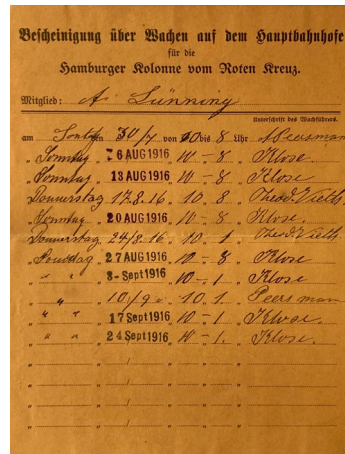 Bescheinigung über Wachen auf dem Hauptbahnhofe
für die
Hamburger Kolonne vom Roten Kreuz.
Mitglied: A. Lünning
Unterschrift des Wachführers.
am Sonntag 30/7 von 10 bis 8 Uhr Peersman
" Sonntag " 6 AUG 1916 " 10 - 8 " Klose
" Sonntag " 13 AUG 1916 " 10 - 8 " Klose
" Donnerstag 17.8.16 " 10 . 8 " Theod. Vieths
" Sonntag " 20 AUG 1916 " 10 - 8 " Klose.
" Donnerstag 24/8.16 " 10 . 1 " Theod. Vieths.
" Sonntag " 27 AUG 1916 " 10 - 8 " Klose
" " " " 3 - Sept 1916 " 10 - 1 " Klose
" " " 10/9 " 10 . 1 " Peersman
" " " " 17 Sept 1916 " 10 - 1 " Klose.
" " " " 24 Sept 1916 " 10 - 1. " Klose.